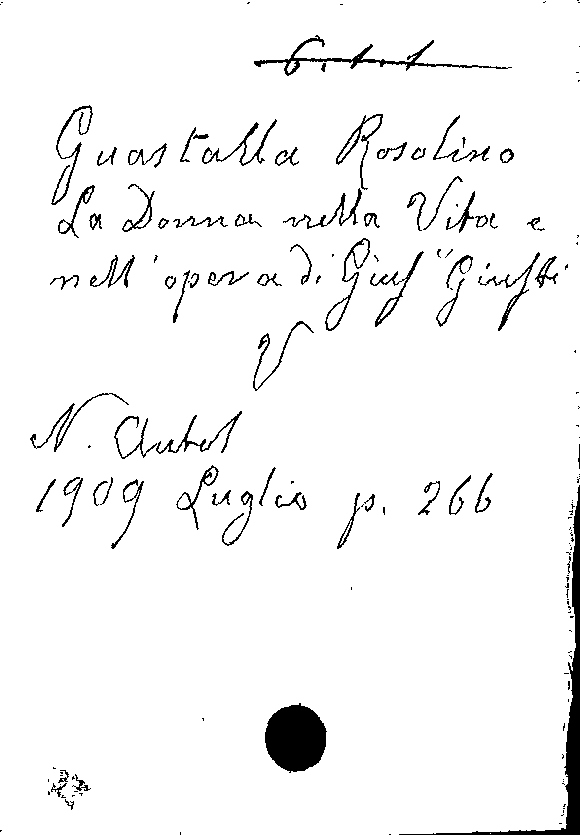 6.1.1
Guastalla Rosolino
La Donna nella Vita e
nell'opera di Gius" Giusti
V
N. Antol
1909 Luglio p. 266